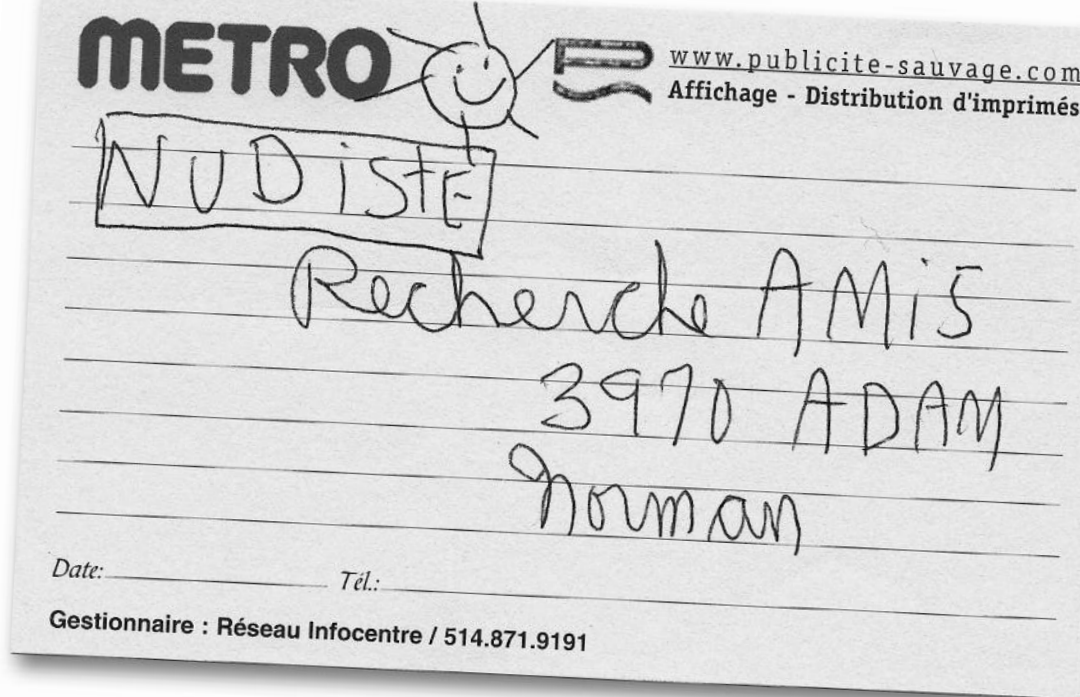 METRO
www.publicite-sauvage.com
Affichage - Distribution d'imprimés
NUDiStE
Recherche AMiS
3970 ADAM
Norman
Date:
Tél.:
Gestionnaire : Réseau Infocentre / 514.871.9191